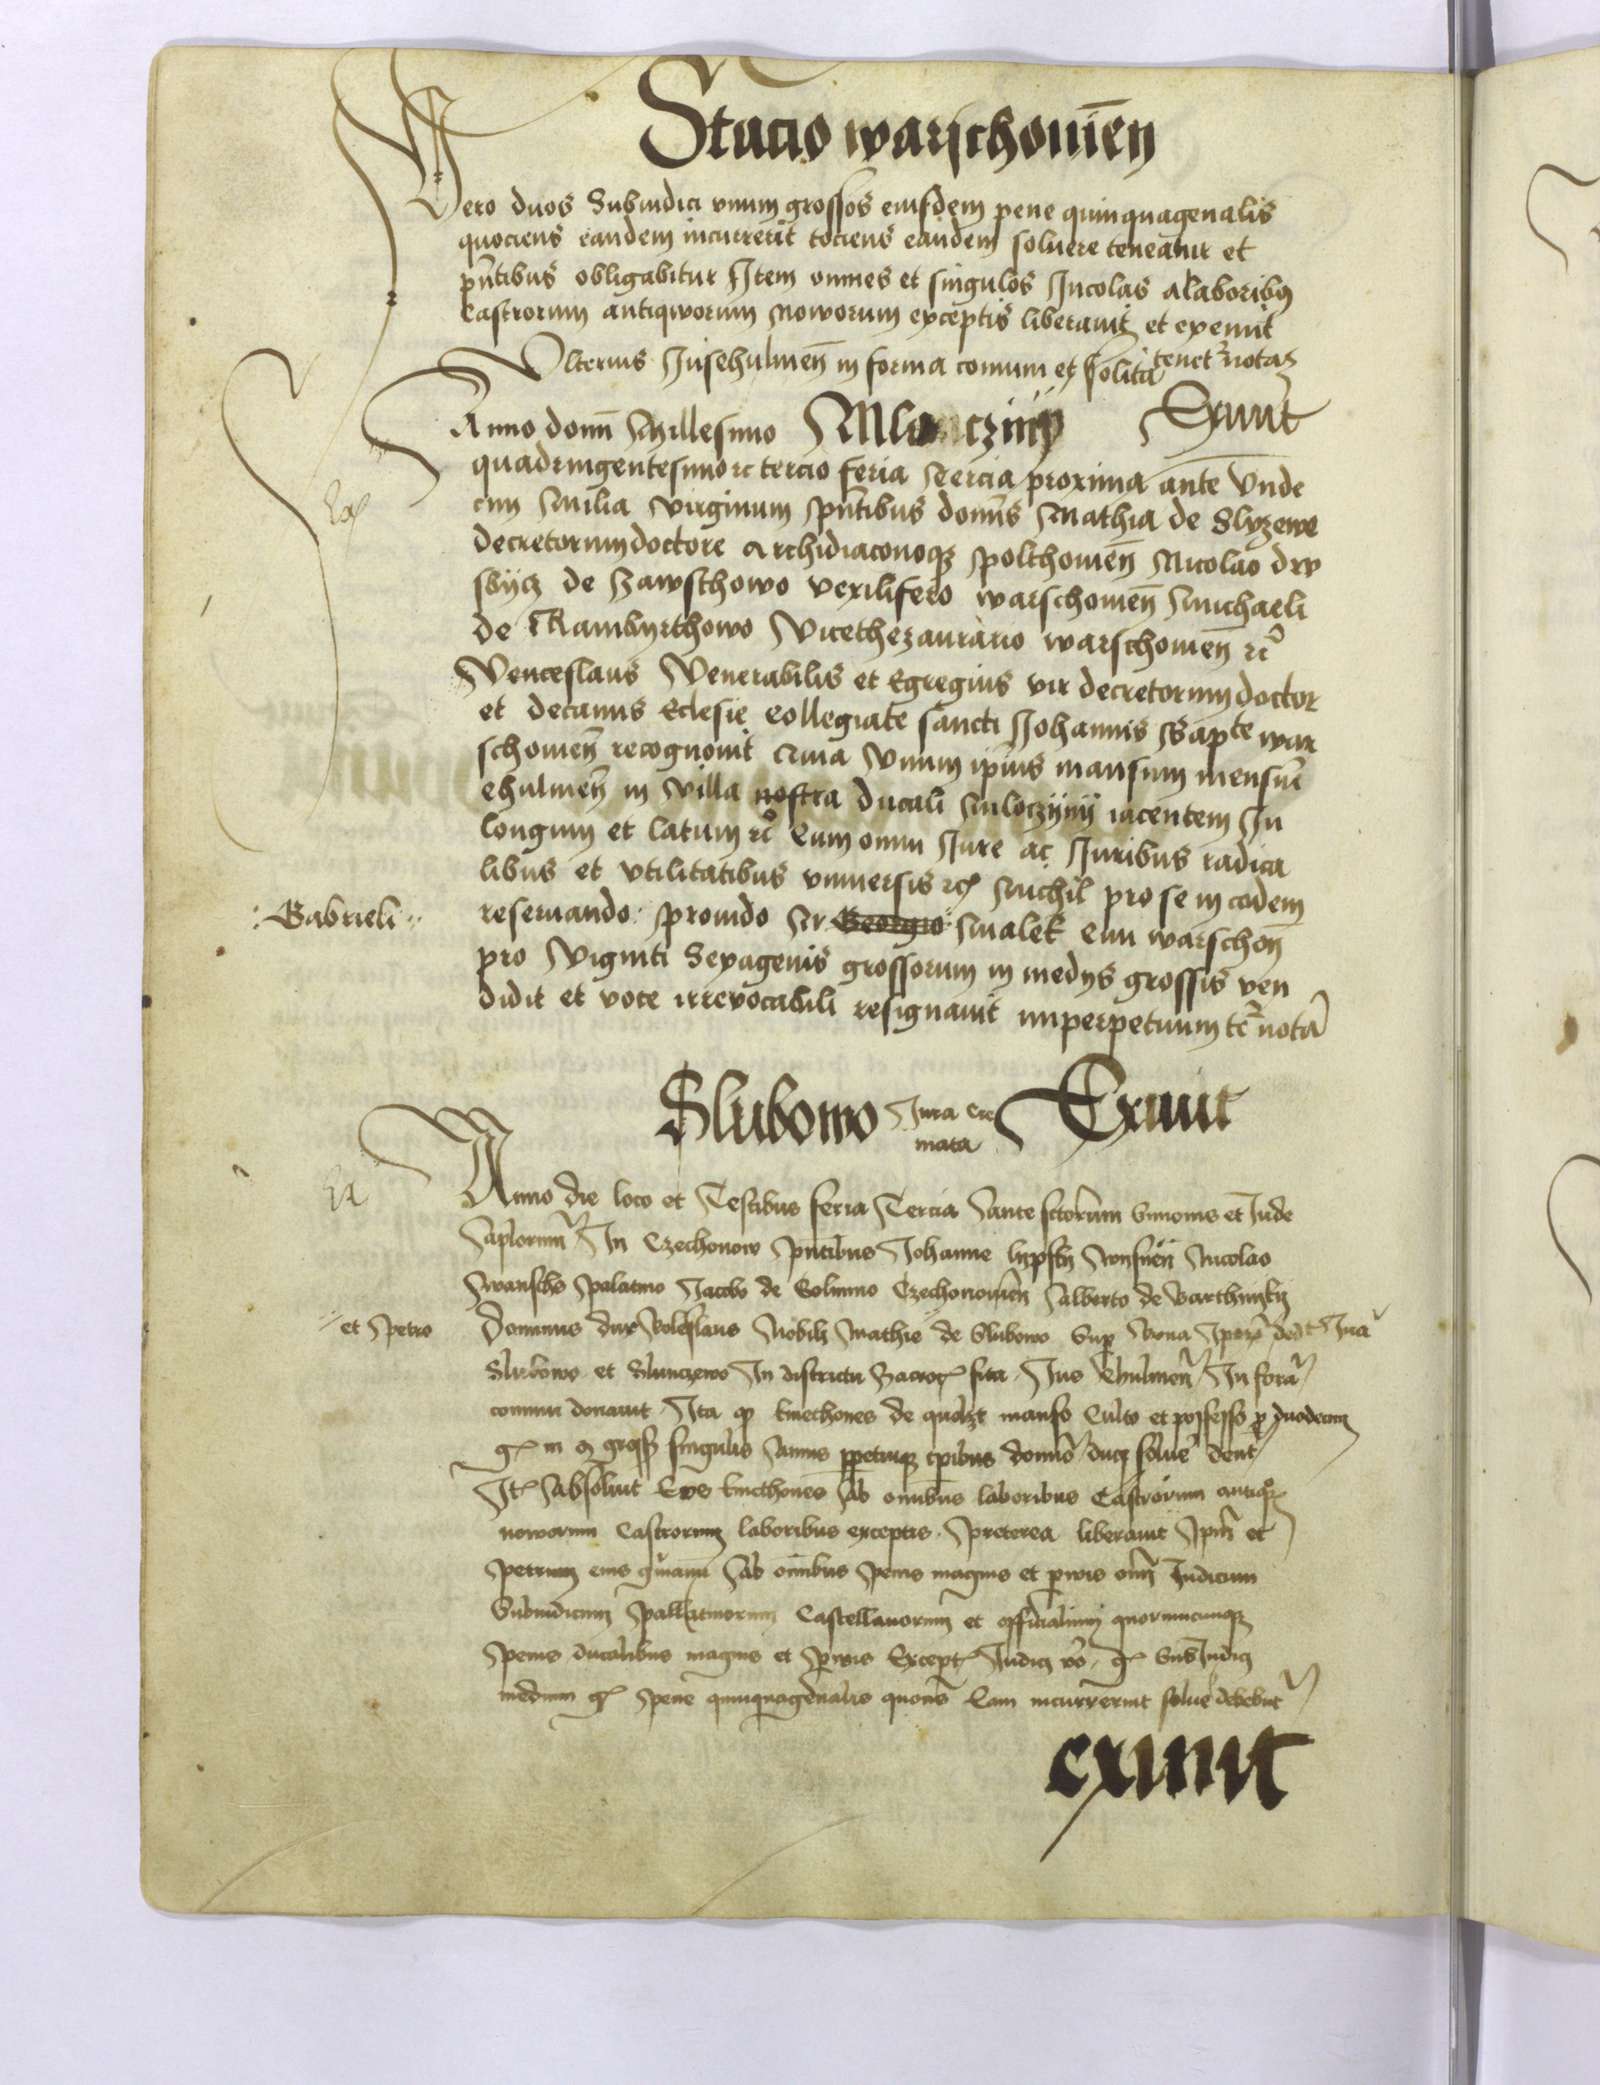 Stacio warschouien̄
Vero duos Subiudici vnum grossos eiusdem pene quinquagenalis
quociens eandem incurrerit tociens eandem soluere teneatur et
pn̄tibus obligabitur Item omnes et singulos Incolas alaboribus
castrorum antiqworum noworum exceptis liberauit et exemit
Vlterius Jusehulmen̄ in forma comuni et solita tenetr notas
Exiuit
Anno domī Millesimo Mloczini
quadringentesimo rc tercio feria Tercia proxima ante Vnde
cim Milia Virginum pn̄tibus domīs Mathia de Slyzewe
decretorum doctore Archidiaconoqz polthouien̄ Nicolao drw
sbycz de Zawschowo vexilifero warschouien̄ Michaeli
de Rambyrthowo Vicethezaurario warschouien̄ rc
Venceslaus Venerabilis et Egregius vir decretorum doctor
et decanus Eclesie collegiate sancti Johannis Bapte war
schouien̄ recognouit Quia Vnum ipīus mansum mensur̄
ehulmen̄ in Villa nostra ducali Mloczyny iacentem In
longum et latum rc Cum omni Jure ac Juribus radica
libus et vtilitatibus vniuersis rc Nichil pro se in eodem
:Gabrieli:
reseruando prouido Georgio Malek ciui warschon̄
pro Viginti Sexagenis grossorum in medys grossis ven
didit et voce irrevocabili resignauit inperpetuum tr nota
Slubowo Jura cre
mata Exiuit
Anno die loco et Testibus feria Tercia Ante sctorum Simonis et Jude
Aplorum In Czechonow pn̄tibus Johanne lypsky Nicolao
palatino Jacobo de Golmino Czechonouien̄ Alberto de
et petro
Dominus dux Boleslaus Nobili Mathie de Slubowo Sup bona Ipor dedt Jura
Slubowo et Slunczewo In districtu Zacroc sita Jus Chulmen̄ In fora
comuni donauit Ita q kmethones de qualzt manso Culto et possesso p duodecim
g in gross singulis Annis ppetuisqz tpibus domō duci soluē dent
It Absoluit Eos kmethones Ab omibus laboribus Castrorum antiqor
noworum Castrorum laboribus exceptis preterea liberauit Ipm̄ et
petrum eius Ab omībus penis magnis et pwis om̄ Judicum
Subiudicum pallatinorum Castellanorum et officialium quorumcunqz
penis ducalibus magnis et pwis Except Judici vō g SubJudici
medium g pene quinquagenalis quociens Eam incurrerint soluē debebut
exiuit